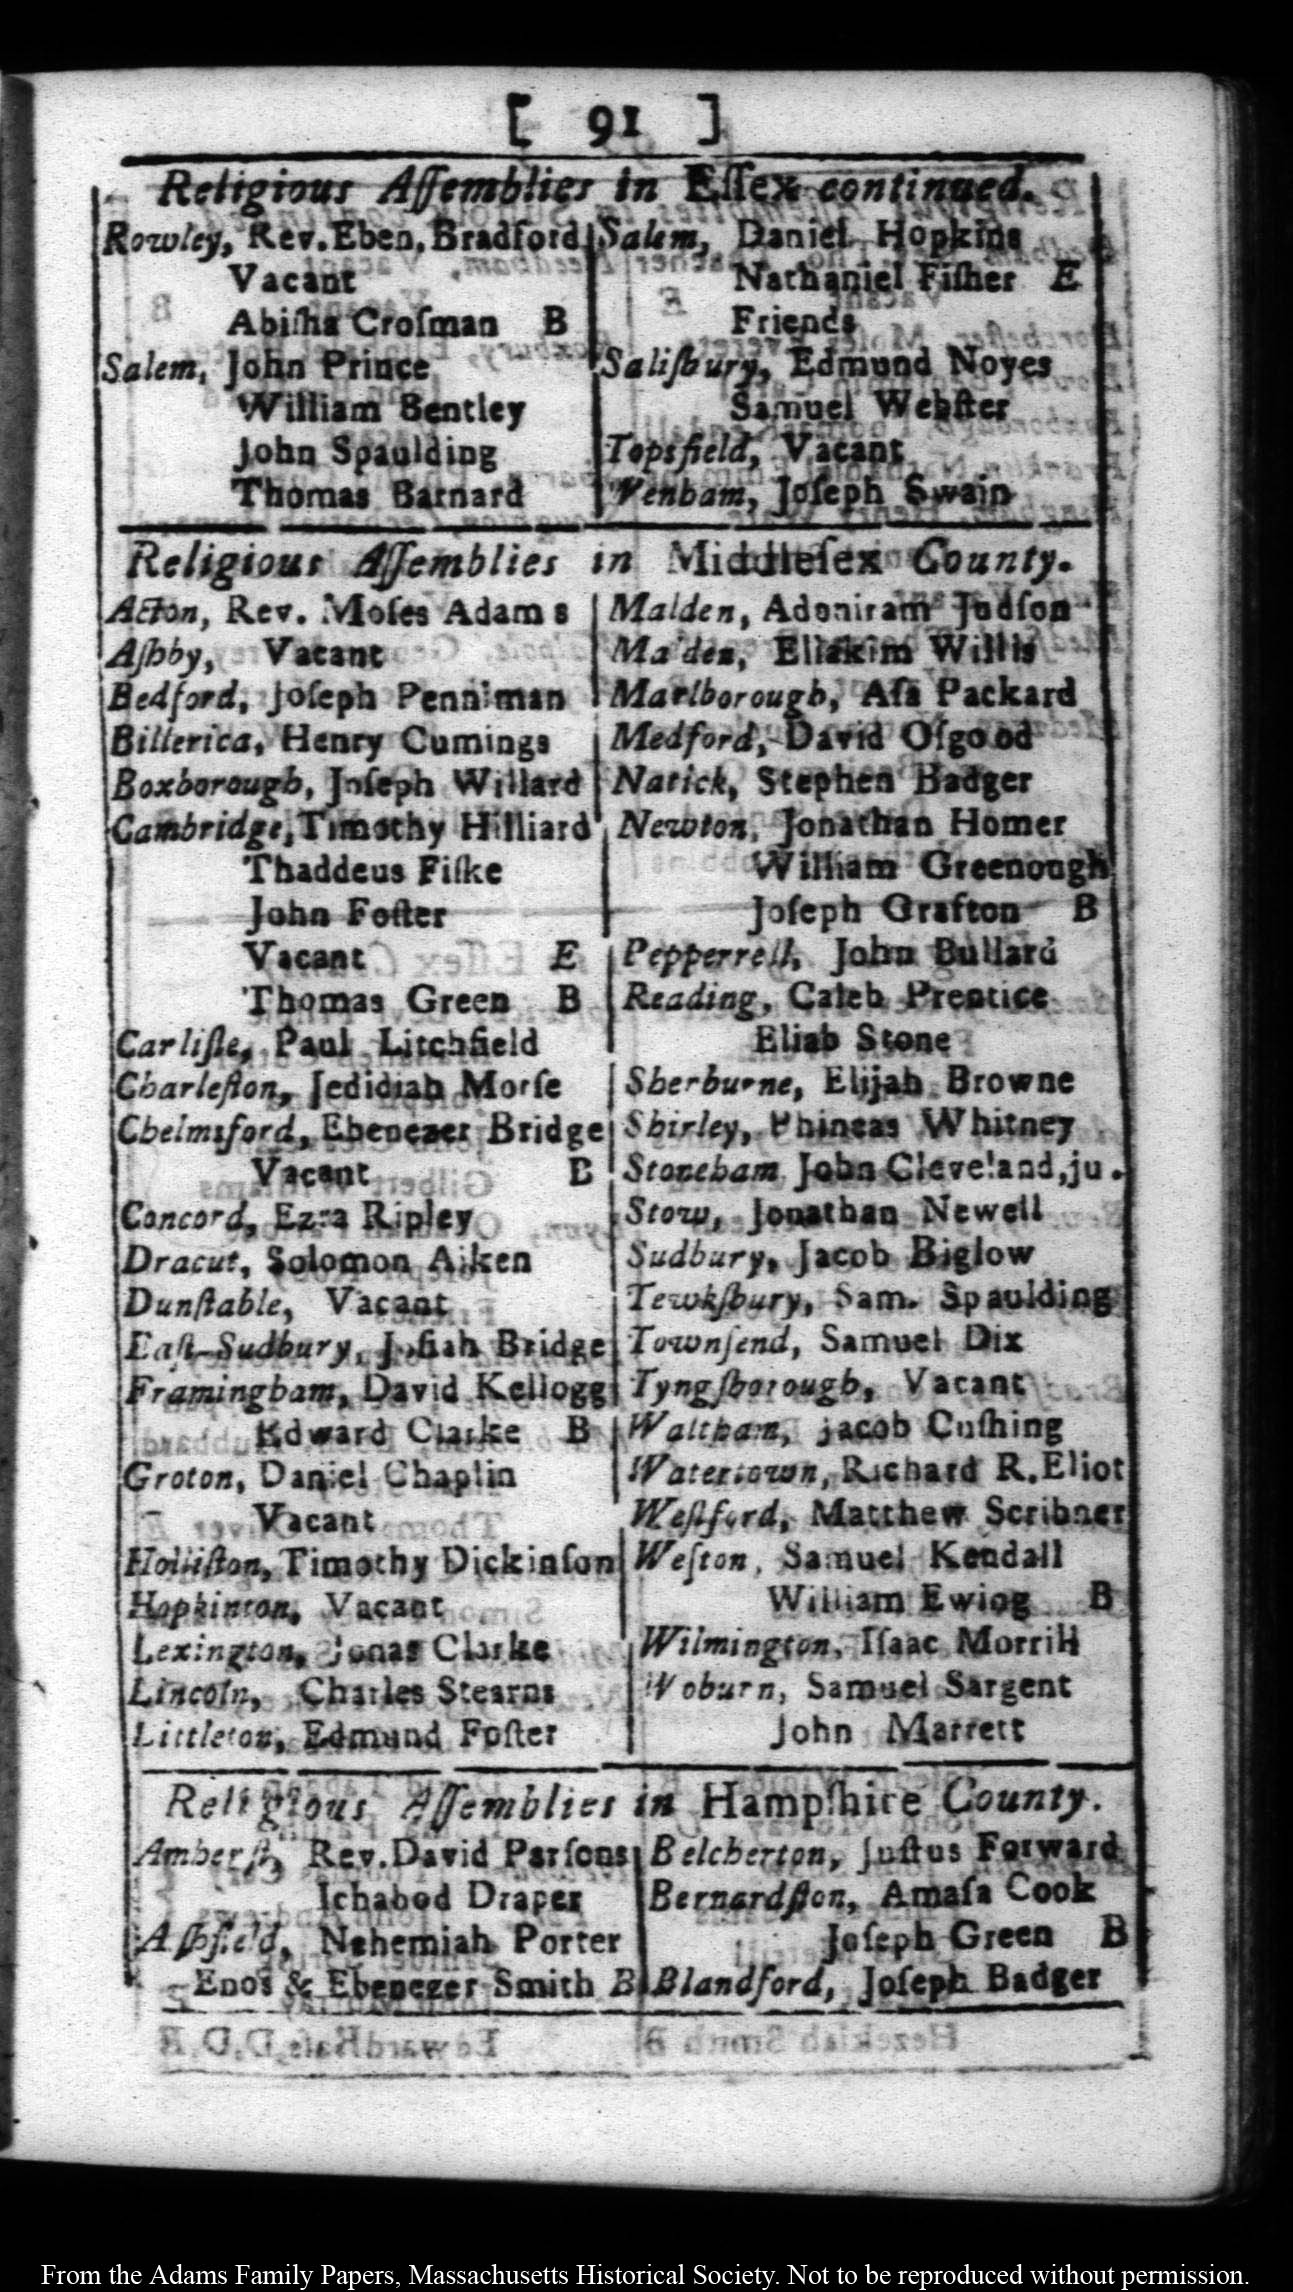 [ 91 ]
Religious Aſſemblies in Eſſex continued.
Rowley, Rev. Eben. Bradford
Vacant
Abiſha Croſman B
Salem, John Prince
William Bentley
John Spaulding
Thomas Barnard
Salem, Daniel Hopkins
Nathaniel Fiſher E
Friends
Saliſbury, Edmund Noyes
Samuel Webſter
Topsfield, Vacant
Wenham, Joſeph Swain
Religious Aſſemblies in Middleſex County.
Acton, Rev. Moſes Adams
Aſhby, Vacant
Bedford, Joſeph Penniman
Billerica, Henry Cumings
Boxborough, Joſeph Willard
Cambridge, Timothy Hilliard
Thaddeus Fiſke
John Foſter
Vacant E
Thomas Green B
Carliſle, Paul Litchfield
Charleſton, Jedidiah Morſe
Chelmsford, Ebenezer Bridge
Vacant B
Concord, Ezra Ripley
Dracut, Solomon Aiken
Dunſtable, Vacant
Eaſt-Sudbury, Joſiah Bridge
Framingham, David Kellogg
Edward Clarke B
Groton, Daniel Chaplin
Vacant
Holliſton, Timothy Dickinſon
Hopkinton, Vacant
Lexington, Jonas Clarke
Lincoln, Charles Stearns
Littleton, Edmund Foſter
Malden, Adoniram Judſon
Ma'den, Eliakim Willis
Marlborough, Aſa Packard
Medford, David Oſgood
Natick, Stephen Badger
Newton, Jonathan Homer
William Greenough
Joſeph Grafton B
Pepperrell, John Bullard
Reading, Caleb Prentice
Eliab Stone
Sherburne, Elijah Browne
Shirley, Phineas Whitney
Stoneham John Cleveland, ju.
Stow, Jonathan Newell
Sudbury, Jacob Biglow
Tewkſbury, Sam. Spaulding
Townſend, Samuel Dix
Tyngſborough, Vacant
Waltham, Jacob Cuſhing
Watertown, Richard R. Eliot
Weſtford, Matthew Scribner
Weſton, Samuel Kendall
William Ewing B
Wilmington, Iſaac Morrill
Woburn, Samuel Sargent
John Marrett
Religious Aſſemblies in Hampſhire County.
Amherſt, Rev. David Parſons
Ichabod Draper
Aſhfield, Nehemiah Porter
Enos & Ebenezer Smith B
Belcherton, Juſtus Forward
Bernardſton, Amaſa Cook
Joſeph Green B
Blandford, Joſeph Badger
From the Adams Family Papers, Massachusetts Historical Society. Not to be reproduced without permission.